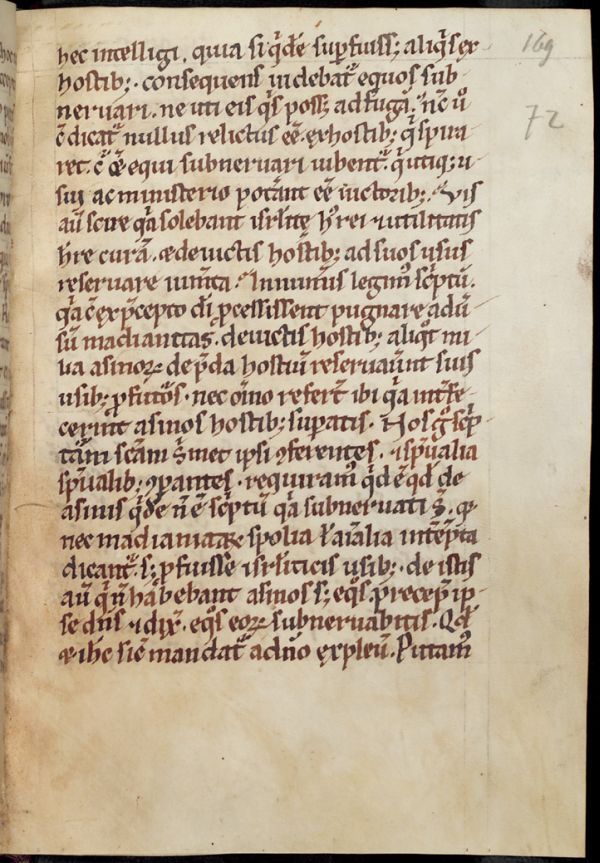 hec intelligi. quia si q̇dē sup̄fuiss; aliq̇s ex
hostib;. consequens uidebat̄ equos sub-
neruari. ne uti eis q̇s poss; ad fugā. nc̄ ū
c̄ dicat̄ nullus relictus eē ex hostib; q̇ spira
ret. c̄ equi subneruari iubent̄. q̇ utiq; u-
sui ac ministerio poterant eē uictorib;. Vis
aū scire q̇a solebant isrl̄itę hˀrei utilitatis
hr̄e curā. & deuictis hostib; ad suos usus
reseruare iumta. In numis legimˀ sc̄ptū.
q̇a c̄ ex p̄cepto dī p̄cessissent pugnare adū
sū madianitas. deuictis hostib; aliq̇t mi-
lia asinoꝝ de p̄da hostiū reseruauert suis
usib; ꝓfutˀos. nec oīno refert̄ ibi q̇a int̄fe-
cerint asinos hostib; sup̄atis. Nos g̊ sc̄p
tā scam s̄met ipsi ꝯferentes. & sp̄ualia
sp̄ualib; ꝯparantes. requiramˀ q̇d ē qd̄ de
asinis q̇dē n̄ ē sc̄ptū q̇a subneruati s̄. q̇
nec madianitaꝝ spolia ł aīalia int̄ēpta
dicant̄. s; ꝓfuisse isrl̄iticis usib;. de istis
aū q̇ n̄ habebant asinos s; eq̇s p̄recep̄ ip-
se dn̄s & dix̄. eq̇s eoꝝ subneruabitis. Qd̄
& ihc̄ siē mandat̄ a dn̄o expleū. Putamˀ
169
72